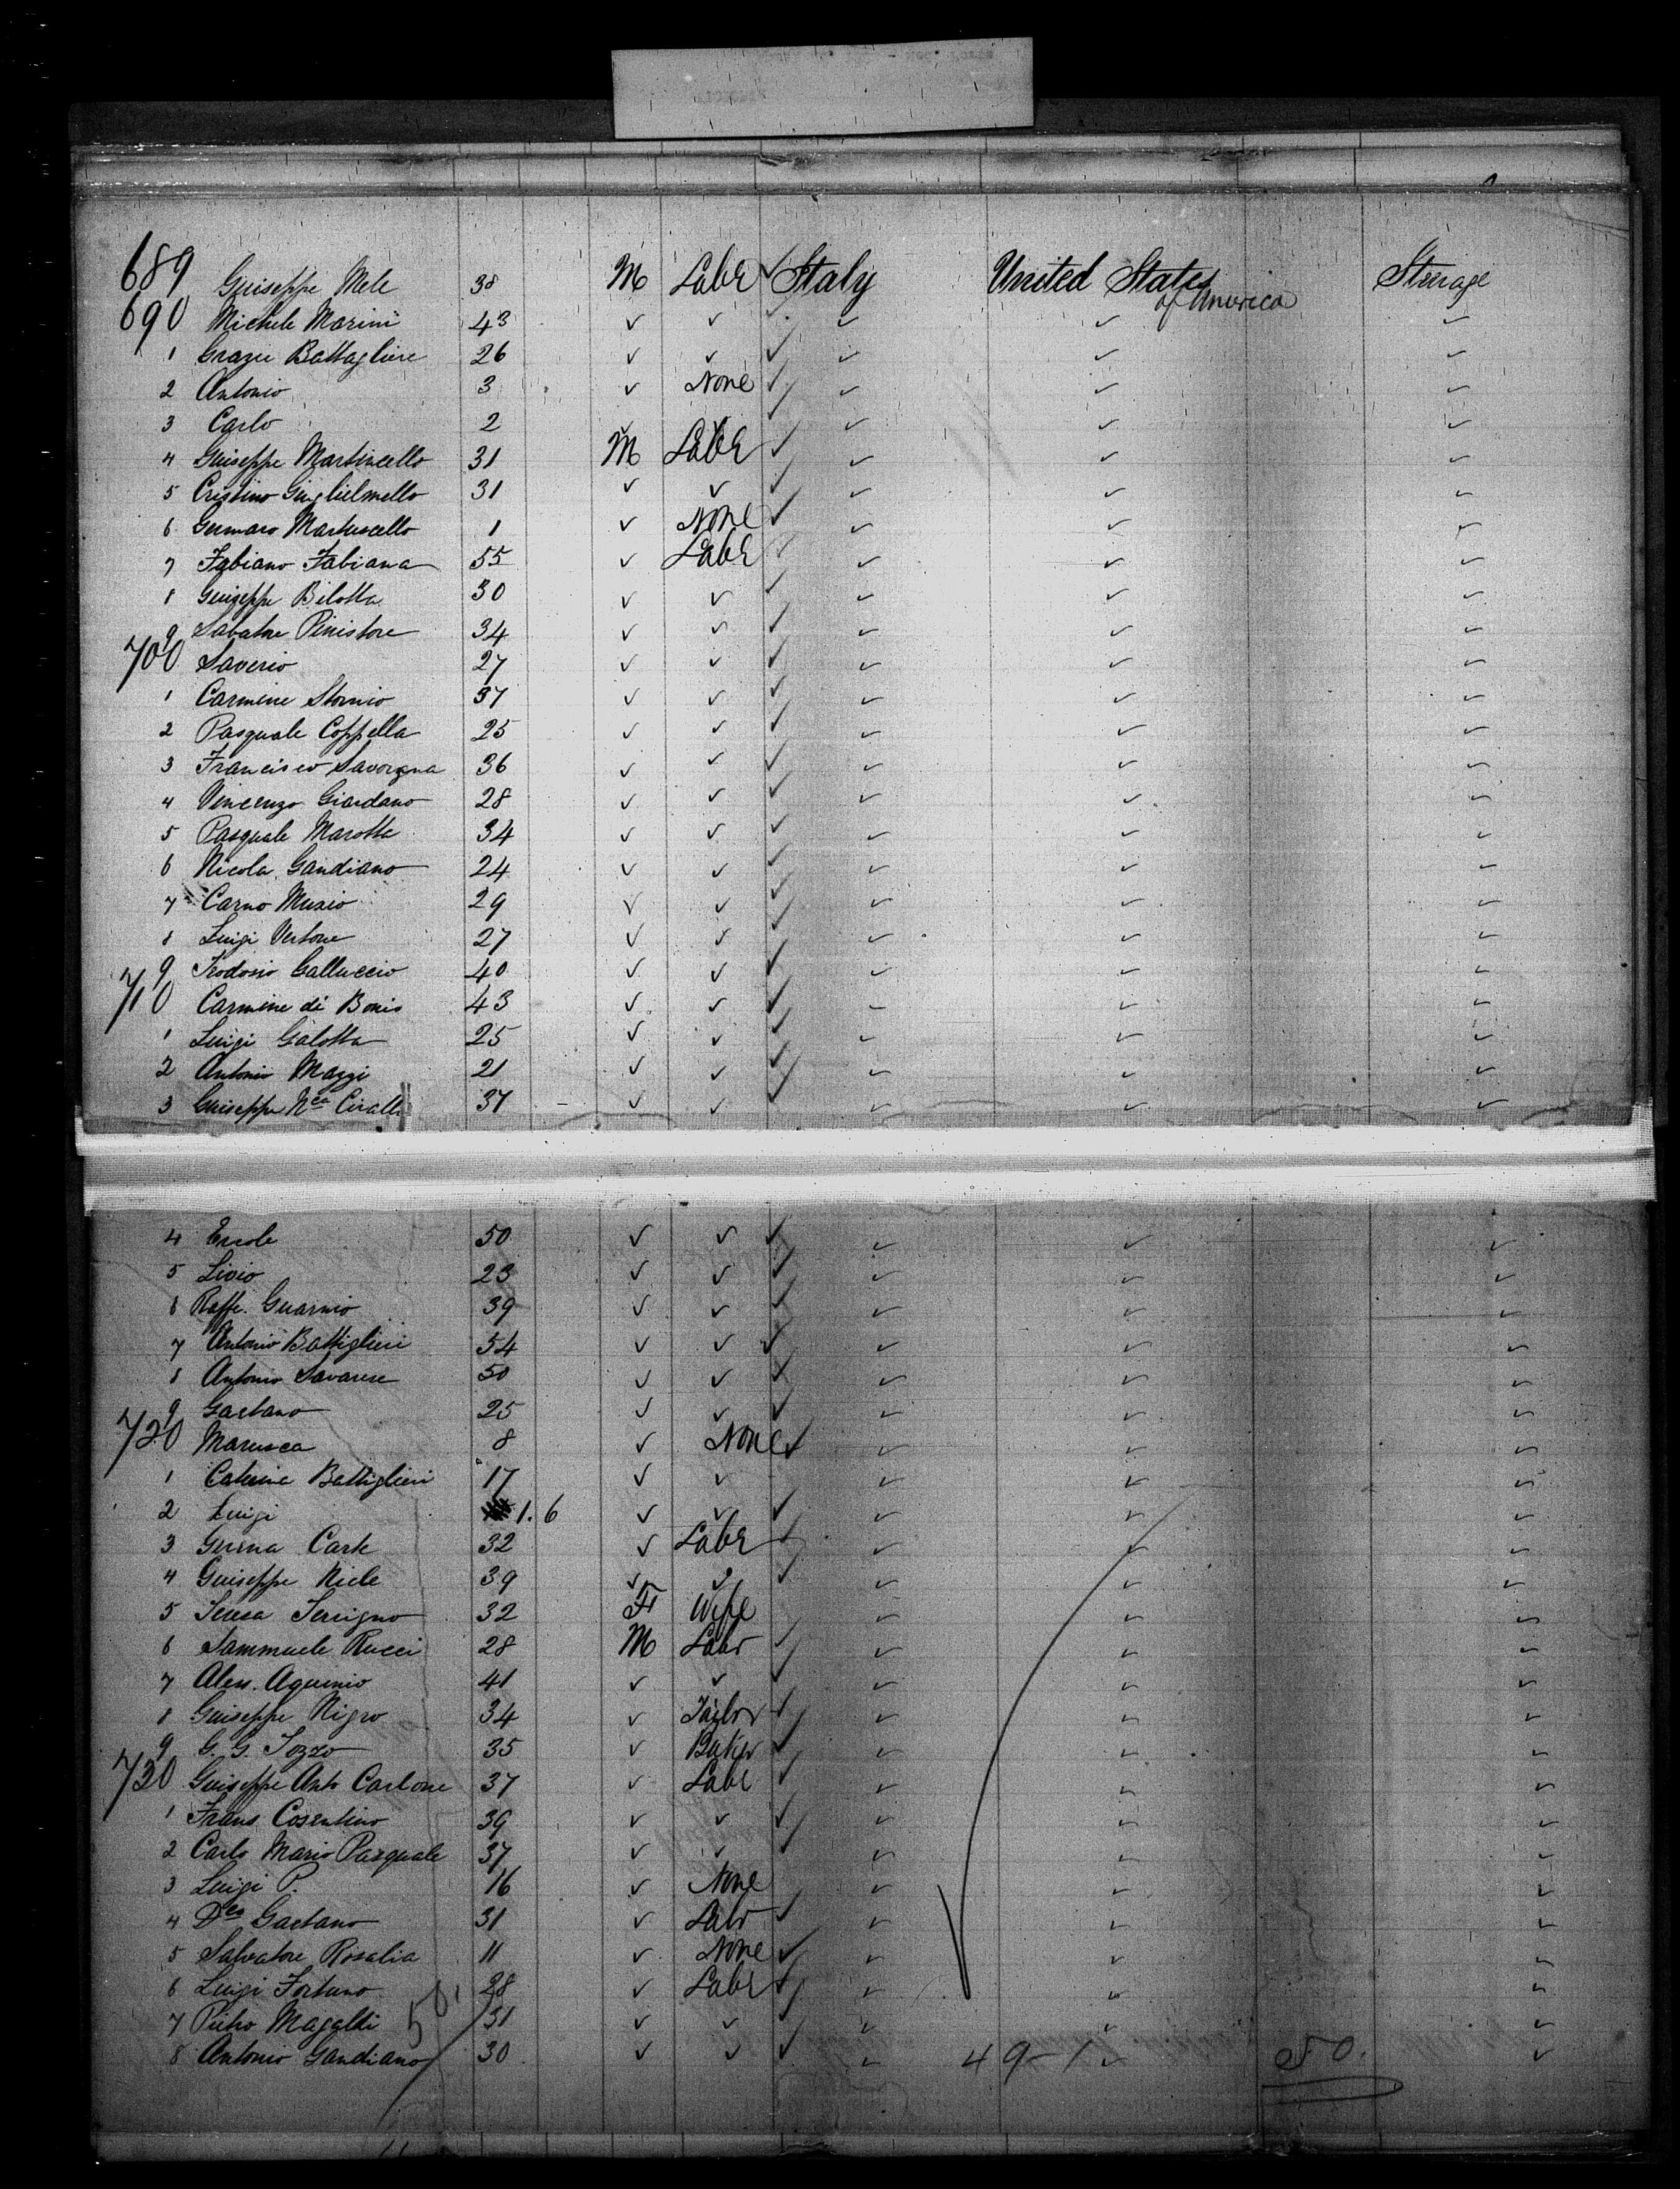 689 Guiseppe Mele 38 M Labr ✓ Italy United States of America Steerage
690 Michele Marini 43 ✓ ✓ ✓ ✓ ✓
1 Grazie Battagliere 26 ✓ ✓ ✓ ✓ ✓ ✓
2 Antonio 3 ✓ None ✓ ✓ ✓ ✓
3 Carlo 2 ✓ ✓ ✓ ✓ ✓ ✓
4 Guiseppe Martincello 31 M Labr ✓ ✓ ✓ ✓
5 Cristino Guiglielmello 31 ✓ ✓ ✓ ✓ ✓ ✓
6 Gennaro Martuscello 1 ✓ None ✓ ✓ ✓ ✓
7 Fabiano Fabiana 55 ✓ Labr ✓ ✓ ✓ ✓
8 Guiseppe Bilotta 30 ✓ ✓ ✓ ✓ ✓ ✓
9 Salvatore Pinistore 34 ✓ ✓ ✓ ✓ ✓ ✓
700 Saverio 27 ✓ ✓ ✓ ✓ ✓ ✓
1 Carmine Stornio 37 ✓ ✓ ✓ ✓ ✓ ✓
2 Pasquale Coppella 25 ✓ ✓ ✓ ✓ ✓ ✓
3 Francisco Savorgna 36 ✓ ✓ ✓ ✓ ✓ ✓
4 Vincenzo Giordano 28 ✓ ✓ ✓ ✓ ✓ ✓
5 Pasquale Marotta 34 ✓ ✓ ✓ ✓ ✓ ✓
6 Nicola Gandiano 24 ✓ ✓ ✓ ✓ ✓ ✓
7 Carno Muzio 29 ✓ ✓ ✓ ✓ ✓ ✓
8 Luigi Vertone 27 ✓ ✓ ✓ ✓ ✓ ✓
9 Galluccio 40 ✓ ✓ ✓ ✓ ✓ ✓
710 Carmine di Bonis 43 ✓ ✓ ✓ ✓ ✓ ✓
1 Luigi Galotta 25 ✓ ✓ ✓ ✓ ✓ ✓
2 Antonio Mazzi 21 ✓ ✓ ✓ ✓ ✓ ✓
3 Guiseppe Nca 37 ✓ ✓ ✓ ✓ ✓ ✓
4 Ercole 50 ✓ ✓ ✓ ✓ ✓ ✓
5 Livio 23 ✓ ✓ ✓ ✓ ✓ ✓
6 Raffe. Guarnio 39 ✓ ✓ ✓ ✓ ✓ ✓
7 Antonio Battiglieri 54 ✓ ✓ ✓ ✓ ✓ ✓
8 Antonio Savarese 50 ✓ ✓ ✓ ✓ ✓ ✓
9 Gaetano 25 ✓ ✓ ✓ ✓ ✓ ✓
720 Marusca 8 ✓ None ✓ ✓ ✓ ✓
1 Caterina Battiglieri 17 ✓ ✓ ✓ ✓ ✓
2 Luigi 1.6 ✓ ✓ ✓ ✓ ✓ ✓
3 Carle 32 ✓ Labr ✓ ✓ ✓ ✓
4 Guiseppe Niele 39 ✓ ✓ ✓ ✓ ✓ ✓
5 Teresa Serrigno 32 F Wife ✓ ✓ ✓
6 Sammuele Rucci 28 M Labr ✓ ✓ ✓ ✓
7 Aless. Aquinio 41 ✓ ✓ ✓ ✓ ✓ ✓
8 Guiseppe Nigro 34 ✓ Tailor ✓ ✓ ✓ ✓
9 G. G. Tozzo 35 ✓ Baker ✓ ✓ ✓ ✓
730 Guiseppe Anto Carlone 37 ✓ Labr ✓ ✓ ✓ ✓
1 Frans. Cosentino 39 ✓ ✓ ✓ ✓ ✓ ✓
2 Carlo Mario Pasquale 37 ✓ ✓ ✓ ✓ ✓ ✓
3 Luigi P. 16 ✓ None ✓ ✓ ✓
4 Dco Gaetano 31 ✓ Labr ✓ ✓ ✓ ✓
5 Salvatore Rosalia 11 ✓ None ✓ ✓ ✓ ✓
6 Luigi Fortuno 28 ✓ Labr ✓ ✓ ✓ ✓
7 Pietro Magaldi 50 31 ✓ ✓ ✓ ✓ ✓ ✓
8 Antonio Gandiano 30 ✓ ✓ ✓ ✓ 49-1 ✓ 50. ✓